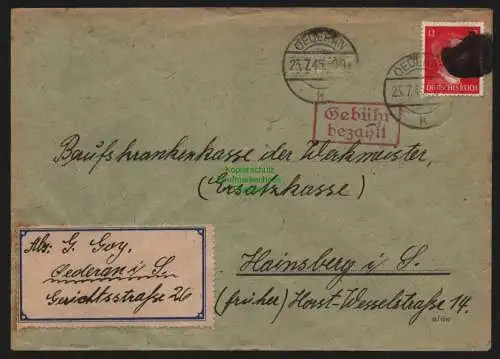 OEDERAN
23.7.45
k
OEDERAN
23.7.45
k
12
DEUTSCHES REICH
Gebühr
bezahlt
Berufskrankenkasse der Werkmeister,
(Ersatzkasse)
Kopierschutz
Briefmarkenhaus
Abs: G. Goy,
Oederan i. S.
Gerichtsstraße 26
Hainsberg i. S.
(früher) Horst-Wesselstraße 14.